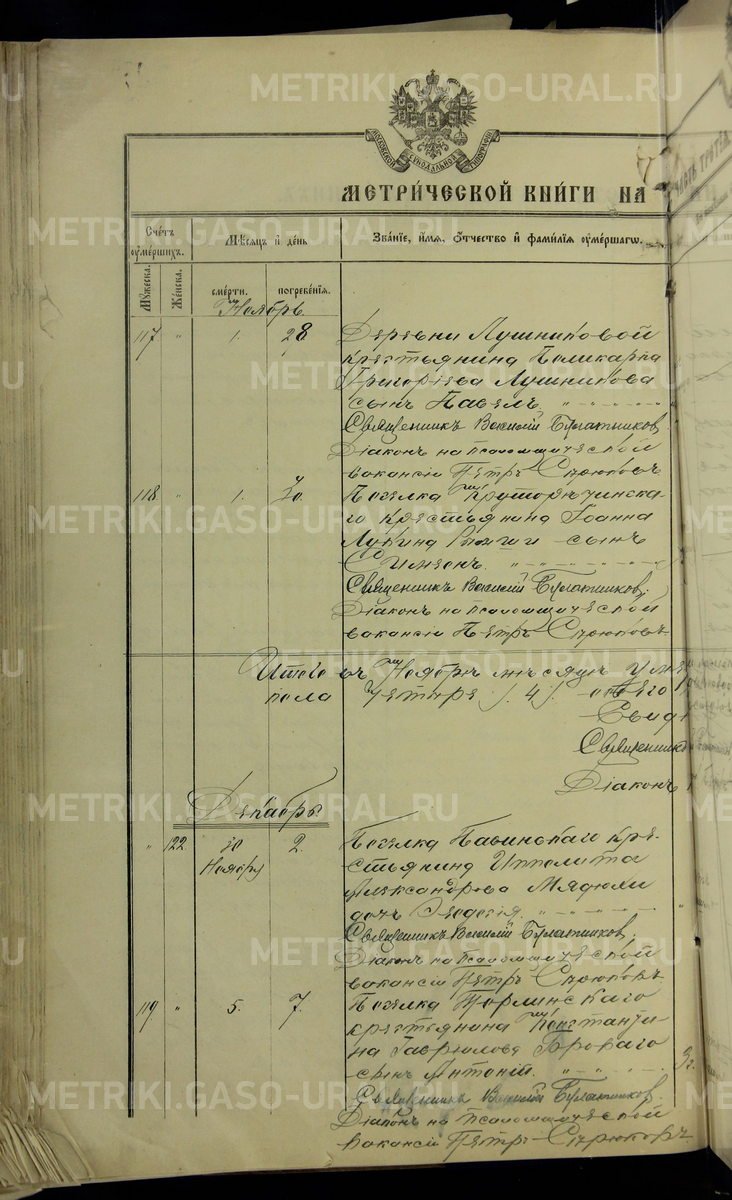 METRIKI.GASO-URAL.RU
МЕТРИ́ЧЕСКОЙ КНИ́ГИ НА
Сче́тъ оу҆ме́ршихъ.
Мѣ́сяцъ и҆ де́нь
Зва́нїе, и҆́мя, ѻ҆́тчество и҆ фами́лїя оу҆ме́ршагѡ.
Мꙋ́жеска.
Же́нска.
сме́рти.
погребе́нїя.
Ноябрь
117 " 1. 28.
Деревни Лушниковой
крестьянина Поликарпа
Григоріева Лушникова
сынъ Павелъ. " " " "
Священникъ Василій Булатников
Діаконъ на псаломщической
вакансіи Петръ Стрюковъ
118 " 1.
Поселка Круторѣчинска-
го крестьянина Іоанна
Лукина сынъ
Симеонъ. " " " "
Священникъ Василій Булатников.
Діаконъ на псаломщической
вакансіи Петръ Стрюковъ
Итого въ Ноябрѣ мѣсяцѣ уме
пола четыре /.4/. обоего
Священникъ
Діаконъ
Декабрь
" 122. 30 Ноября 2.
Поселка Павинскаго кре-
стьянина Ипполита
Александрова
дочь Ѳеодосія. " " "
Священникъ Василій Булатников.
Діаконъ на псаломщической
вакансіи Петръ Стрюковъ
119 " 5. 7.
Поселка Торлинскаго
крестьянина Константи-
на Гаврилова
сынъ Антоній. " " "
Священникъ Василій Булатников.
Діаконъ на псаломщической
вакансіи Петръ Стрюковъ